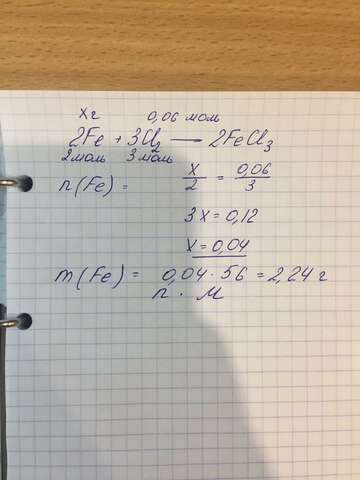 xг 0,06 моль
2Fe + 3Cl₂ — 2FeCl₃
2моль 3 моль
n(Fe) = x/2 = 0,06/3
3x = 0,12
x = 0,04
m(Fe) = 0,04 · 56 = 2,24 г
n · M